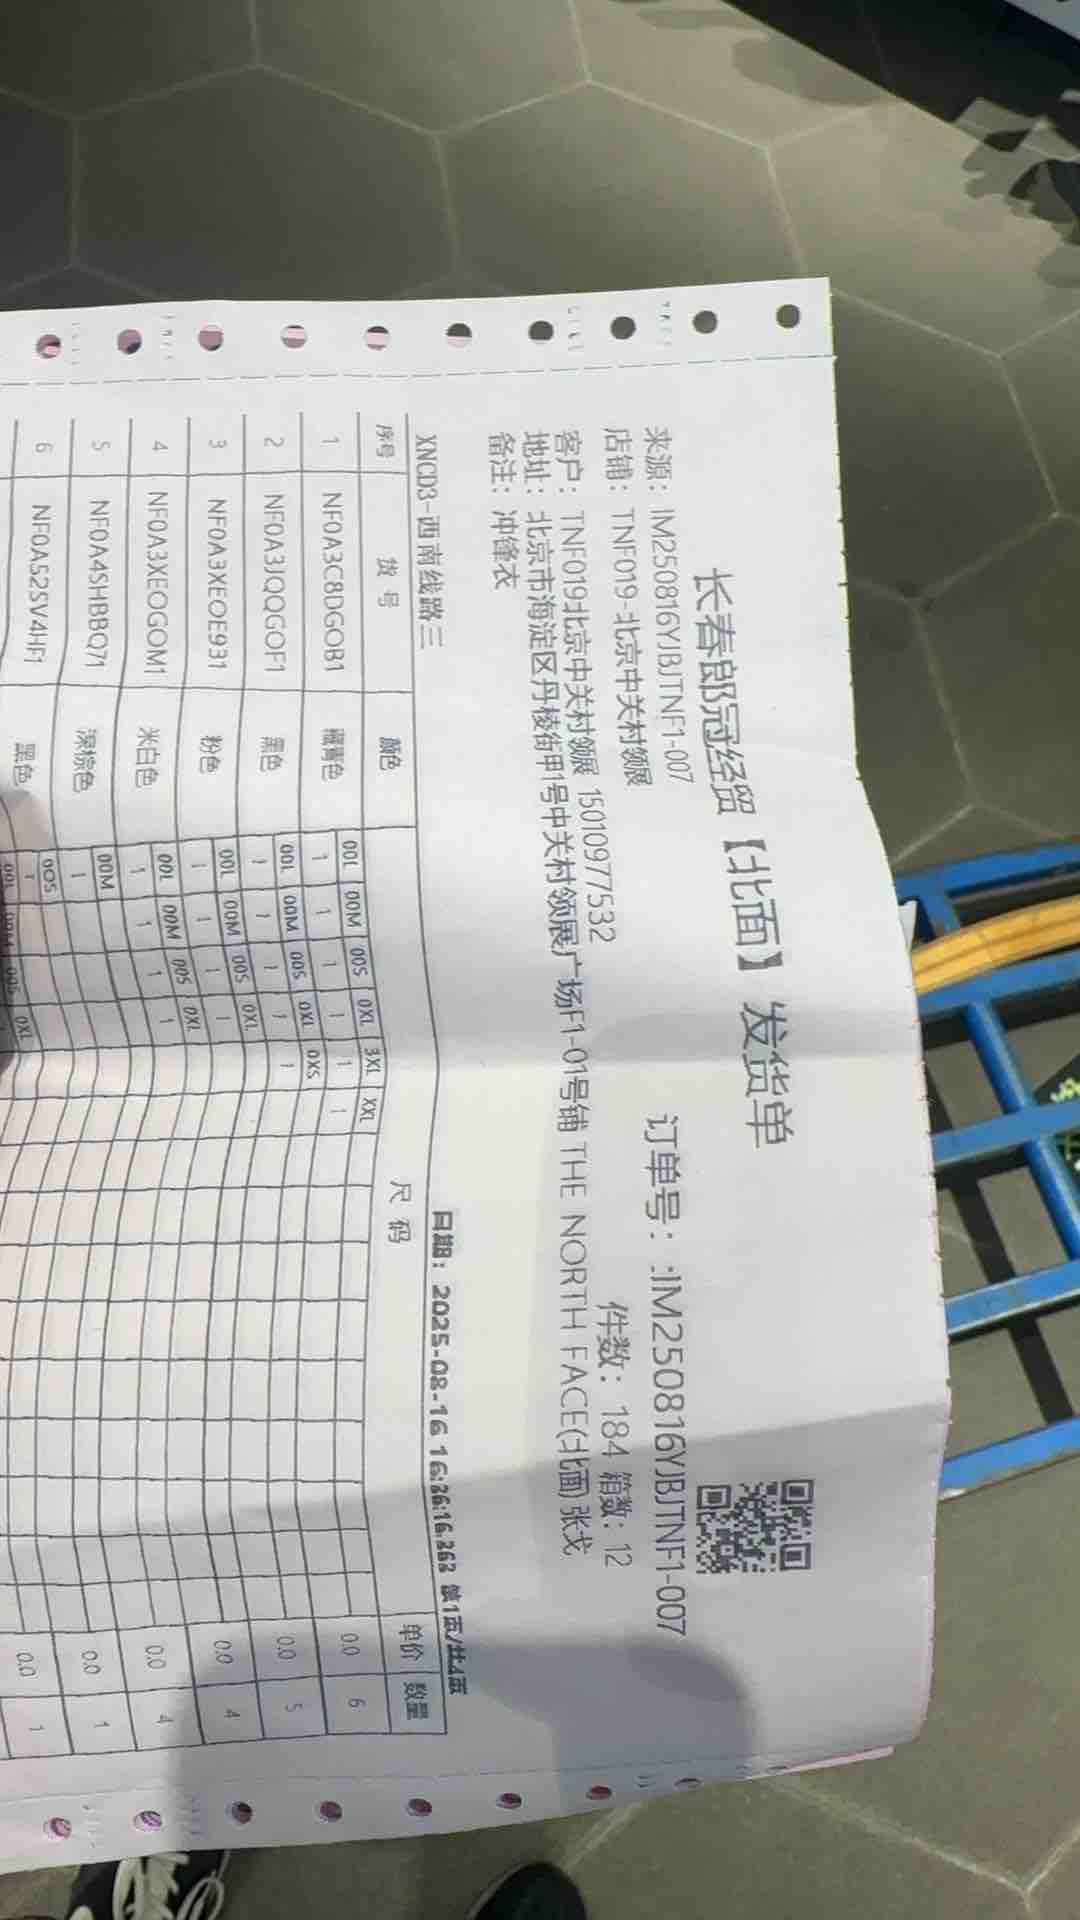 长春郎冠经贸【北面】 发货单
来源：IM250816YJBJTNF1-007 订单号：:IM250816YJBJTNF1-007
店铺：TNF019-北京中关村领展 件数：184 箱数：12
客户：TNF019北京中关村领展 15010977532
地址：北京市海淀区丹棱街甲1号中关村领展广场F1-01号铺 THE NORTH FACE(北面) 张戈
备注：冲锋衣
XNCD3-西南线路三 日期：2025-08-16 16:26:16.263 第1页/共4页
序号 货号 颜色 尺码 单价 数量
00L 00M 00S 0XL 3XL XXL
1 NF0A3C8DGOB1 藏青色 1 1 1 1 1 1 0.0 6
00L 00M 00S 0XL 0XS
2 NF0A3JQQGOF1 黑色 1 1 1 1 1 0.0 5
00L 00M 00S 0XL
3 NF0A3XEOE931 粉色 1 1 1 1 0.0 4
00L 00M 00S 0XL
4 NF0A3XEOGOM1 米白色 1 1 1 1 0.0 4
00M
5 NF0A4SHBBQ71 深棕色 1 0.0 1
00S
6 NF0A52SV4HF1 黑色 1 0.0 1
00L 00M 00S 0XL